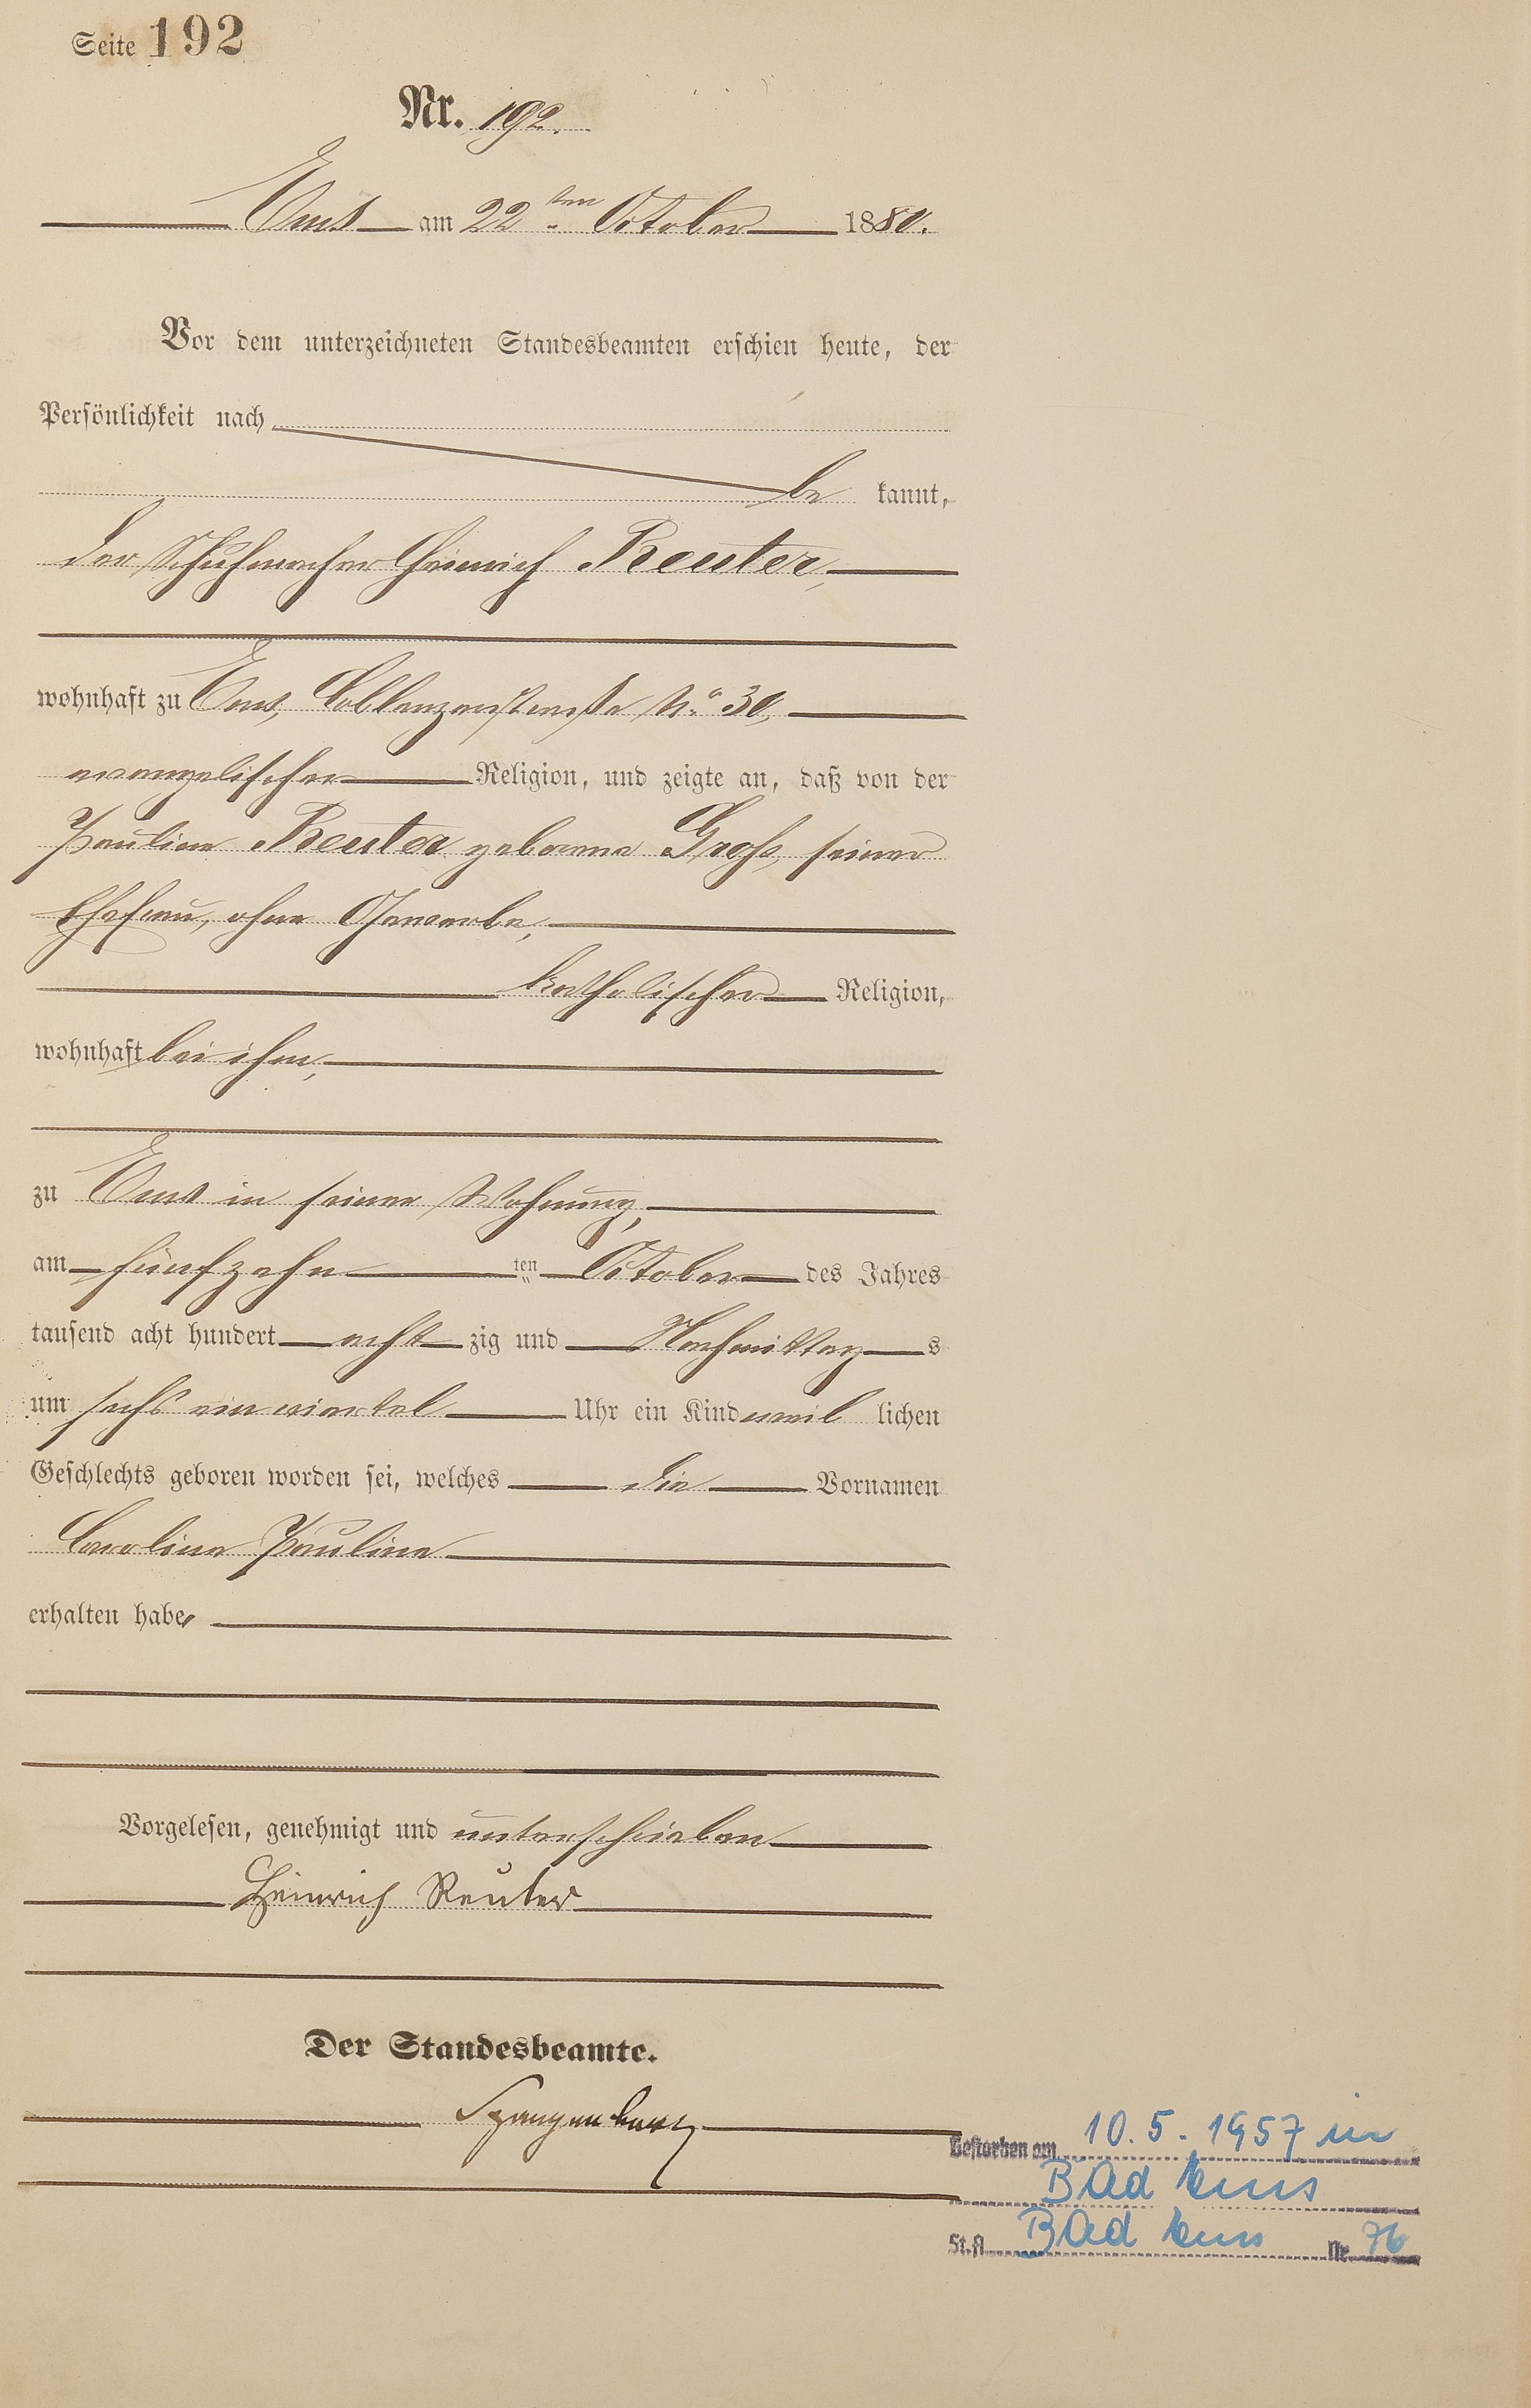 Seite 192
Nr. 192.
Ems am 22ten October 1880.
Vor dem unterzeichneten Standesbeamten erschien heute, der
Persönlichkeit nach
be kannt,
der Schuhmacher Heinrich Reuter,
wohnhaft zu Ems, Coblenzerstraße No. 30,
evangelischer Religion, und zeigte an, daß von der
Pauline Reuter geborene Groß, seiner
Ehefrau, ohne Gewerbe,
katholischer Religion,
wohnhaft bei ihm,
zu Ems in seiner Wohnung,
am fünfzehn ten October des Jahres
tausend acht hundert acht zig und Nachmittag s
um sechs ein viertel Uhr ein Kind weib lichen
Geschlechts geboren worden sei, welches die Vornamen
Carolina Pauline
erhalten habe
Vorgelesen, genehmigt und unterschrieben
Heinrich Reuter
Der Standesbeamte.
Spangenberg
Gestorben am 10.5.1957 in
Bad Ems
St.A. Bad Ems Nr. 76